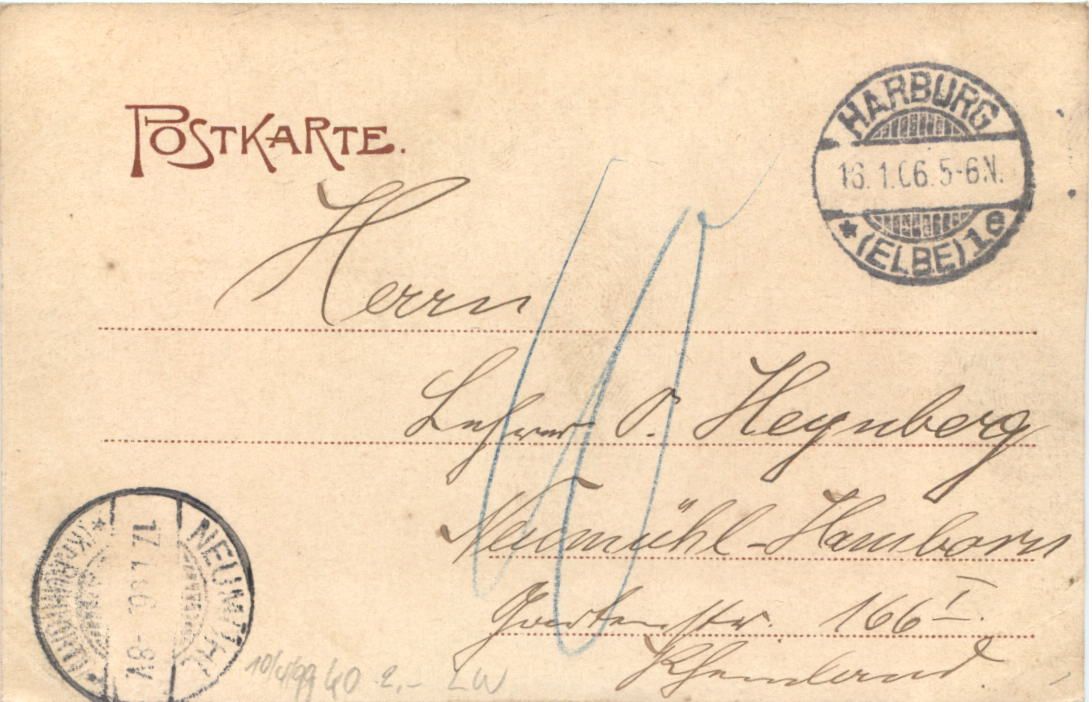 POSTKARTE.
HARBURG
16.1.06.5-6N.
* (ELBE) 1e
Herrn
Lehrer O. Heynberg
Neumühl-Hamborn
Gartenstr. 166 I.
Rheinland.
10
NEUMÜHL
17.1.06. 8-
10/4/99 40 2.- LW